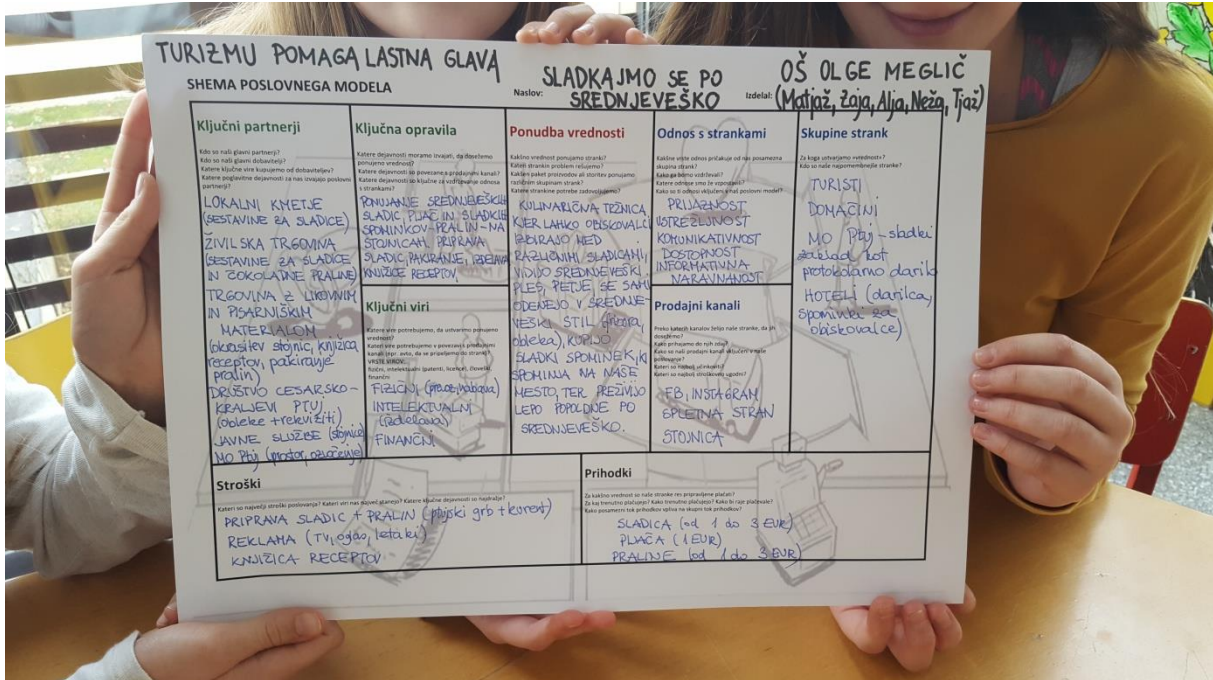 TURIZMU POMAGA LASTNA GLAVA
SHEMA POSLOVNEGA MODELA
Naslov: SLADKAJMO SE PO
SREDNJEVEŠKO
OŠ OLGE MEGLIČ
Izdelal: (Matjaž, Zaja, Alja, Neža, Tjaž)
Ključni partnerji
Kdo so naši glavni partnerji?
Kdo so naši glavni dobavitelji?
Katere ključne vire kupujemo od dobaviteljev?
Katere poglavitne dejavnosti za nas izvajajo poslovni
partnerji?
LOKALNI KMETJE
(SESTAVINE ZA SLADICE)
ŽIVILSKA TRGOVINA
(SESTAVINE ZA SLADICE
IN ČOKOLADNE PRALINE)
TRGOVINA Z LIKOVNIM
IN PISARNIŠKIM
MATERIALOM
(okrasitev stojnic, knjižica
receptov, pakiranje
pralin)
DRUŠTVO CESARSKO-
KRALJEVI PTUJ
(obleke + rekviziti)
JAVNE SLUŽBE (stojnice)
MO Ptuj (prostor, ozvočenje)
Ključna opravila
Katere dejavnosti moramo izvajati, da dosežemo
ponujeno vrednost?
Katere dejavnosti so povezane s prodajnimi kanali?
Katere dejavnosti so ključne za vzdrževanje odnosa
s strankami?
PONUJANJE SREDNJEVEŠKIH
SLADIC, PIJAČ IN SLADKIH
SPOMINKOV-PRALIN-NA
ŠTOJNICAH, PRIPRAVA
SLADIC, PAKIRANJE, IZDELAVA
KNJIŽICE RECEPTOV
Ključni viri
Katere vire potrebujemo, da ustvarimo ponujeno
vrednost?
Katere vire potrebujemo v povezavi s prodajnimi
kanali (npr. avto, da se pripeljemo do strank)?
VRSTE VIROV:
fizični, intelektualni (patenti, licence), človeški,
finančni
FIZIČNI (prevoz, nabava)
INTELEKTUALNI
(izdelava)
FINANČNI
Ponudba vrednosti
Kakšno vrednost ponujamo stranki?
Kateri strankin problem rešujemo?
Kakšen paket proizvodov ali storitev ponujamo
različnim skupinam strank?
Katere strankine potrebe zadovoljujemo?
KULINARIČNA TRŽNICA,
KJER LAHKO OBISKOVALCI
IZBIRAJO MED
RAZLIČNIMI SLADICAMI,
VIDIJO SREDNJEVEŠKI
PLES, PETJE, SE SAMI
ODENEJO V SREDNJE-
VEŠKI STIL (frizura,
obleka), KUPIJO
SLADKI SPOMINEK, KI
SPOMINJA NA NAŠE
MESTO, TER PREŽIVIJO
LEPO POPOLDNE PO
SREDNJEVEŠKO.
Odnos s strankami
Kakšne vrste odnos pričakuje od nas posamezna
skupina strank?
Kako ga bomo vzdrževali?
Katere odnose smo že vzpostavili?
Kako so ti odnosi vključeni v naš poslovni model?
PRIJAZNOST
USTREŽLJIVOST
KOMUNIKATIVNOST
DOSTOPNOST
INFORMATIVNA
NARAVNANOST
Prodajni kanali
Preko katerih kanalov želijo naše stranke, da jih
dosežemo?
Kako prihajamo do njih zdaj?
Kako so naši prodajni kanali vključeni v naše
poslovanje?
Kateri so najbolj učinkoviti?
Kateri so najbolj stroškovno ugodni?
FB, INSTAGRAM
SPLETNA STRAN
STOJNICA
Skupine strank
Za koga ustvarjamo »vrednost«?
Kdo so naše najpomembnejše stranke?
TURISTI
DOMAČINI
MO Ptuj - sladki
zaklad kot
protokolarno darilo
HOTELI (darilca,
spominki za
obiskovalce)
Stroški
Kateri so največji stroški poslovanja? Kateri viri nas največ stanejo? Katere ključne dejavnosti so najdražje?
PRIPRAVA SLADIC + PRALIN (ptujski grb + kurent)
REKLAMA (TV, oglas, letaki)
KNJIŽICA RECEPTOV
Prihodki
Za kakšno vrednost so naše stranke res pripravljene plačati?
Za kaj trenutno plačujejo? Kako trenutno plačujejo? Kako bi raje plačevale?
Kako posamezni tok prihodkov vpliva na skupni tok prihodkov?
SLADICA (od 1 do 3 EUR)
PIJAČA (1 EUR)
PRALINE (od 1 do 3 EUR)